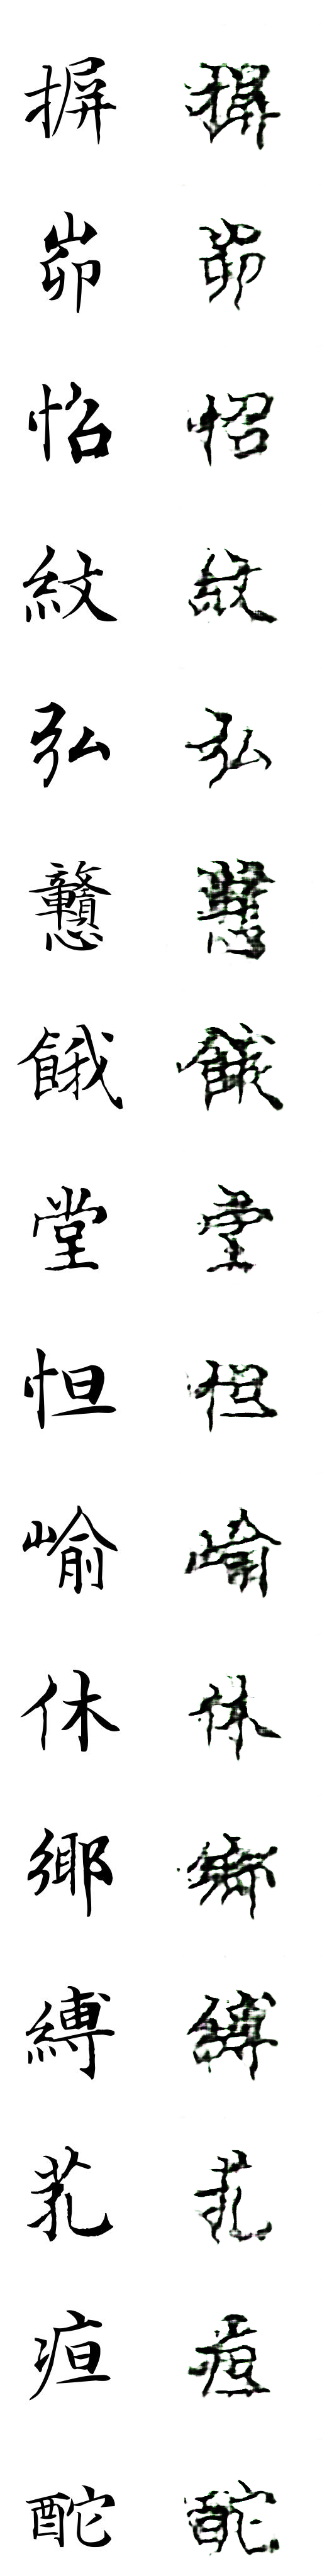 摒 摒
峁 峁
怊 怊
紋 紋
弘 弘
戇 戇
餓 餓
堂 堂
怛 怛
崳 崳
休 休
鄉 鄉
縛 縛
芤 芤
疸 疸
酡 酡